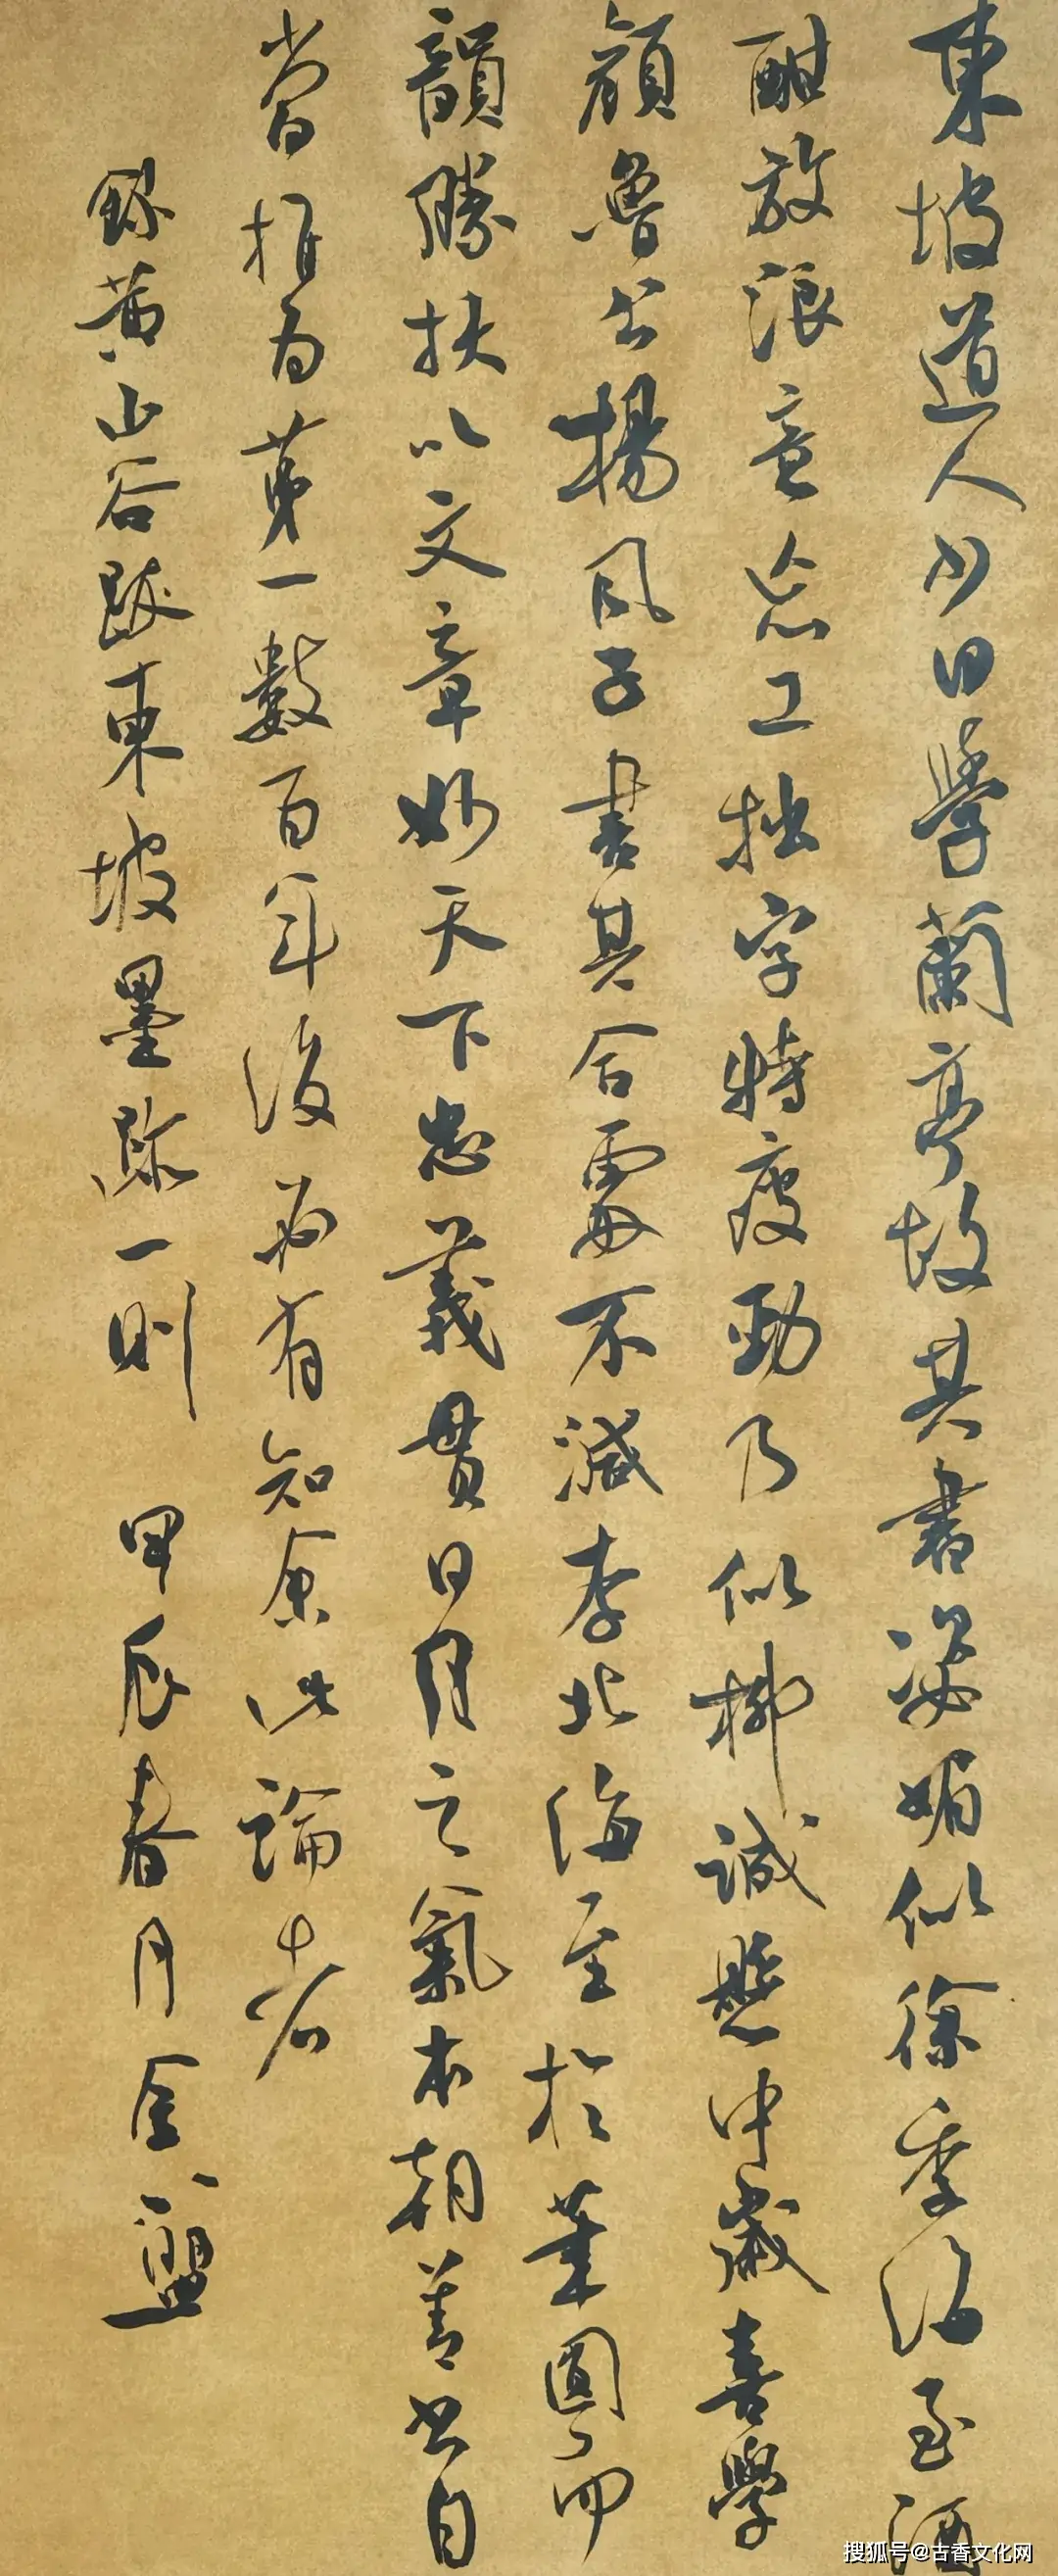 東坡道人少日學蘭亭故其書姿媚似徐季海至酒
酣放浪意忘工拙字特瘦勁乃似柳誠懸中歲喜學
顏魯公揚風子書其合處不減李北海至於筆圓而
韻勝挾以文章妙天下忠義貫日月之氣本朝善書自
當推為第一數百年後必有知余此論者
錄黃山谷跋東坡墨跡一則 甲辰春月金
搜狐号@古香文化网